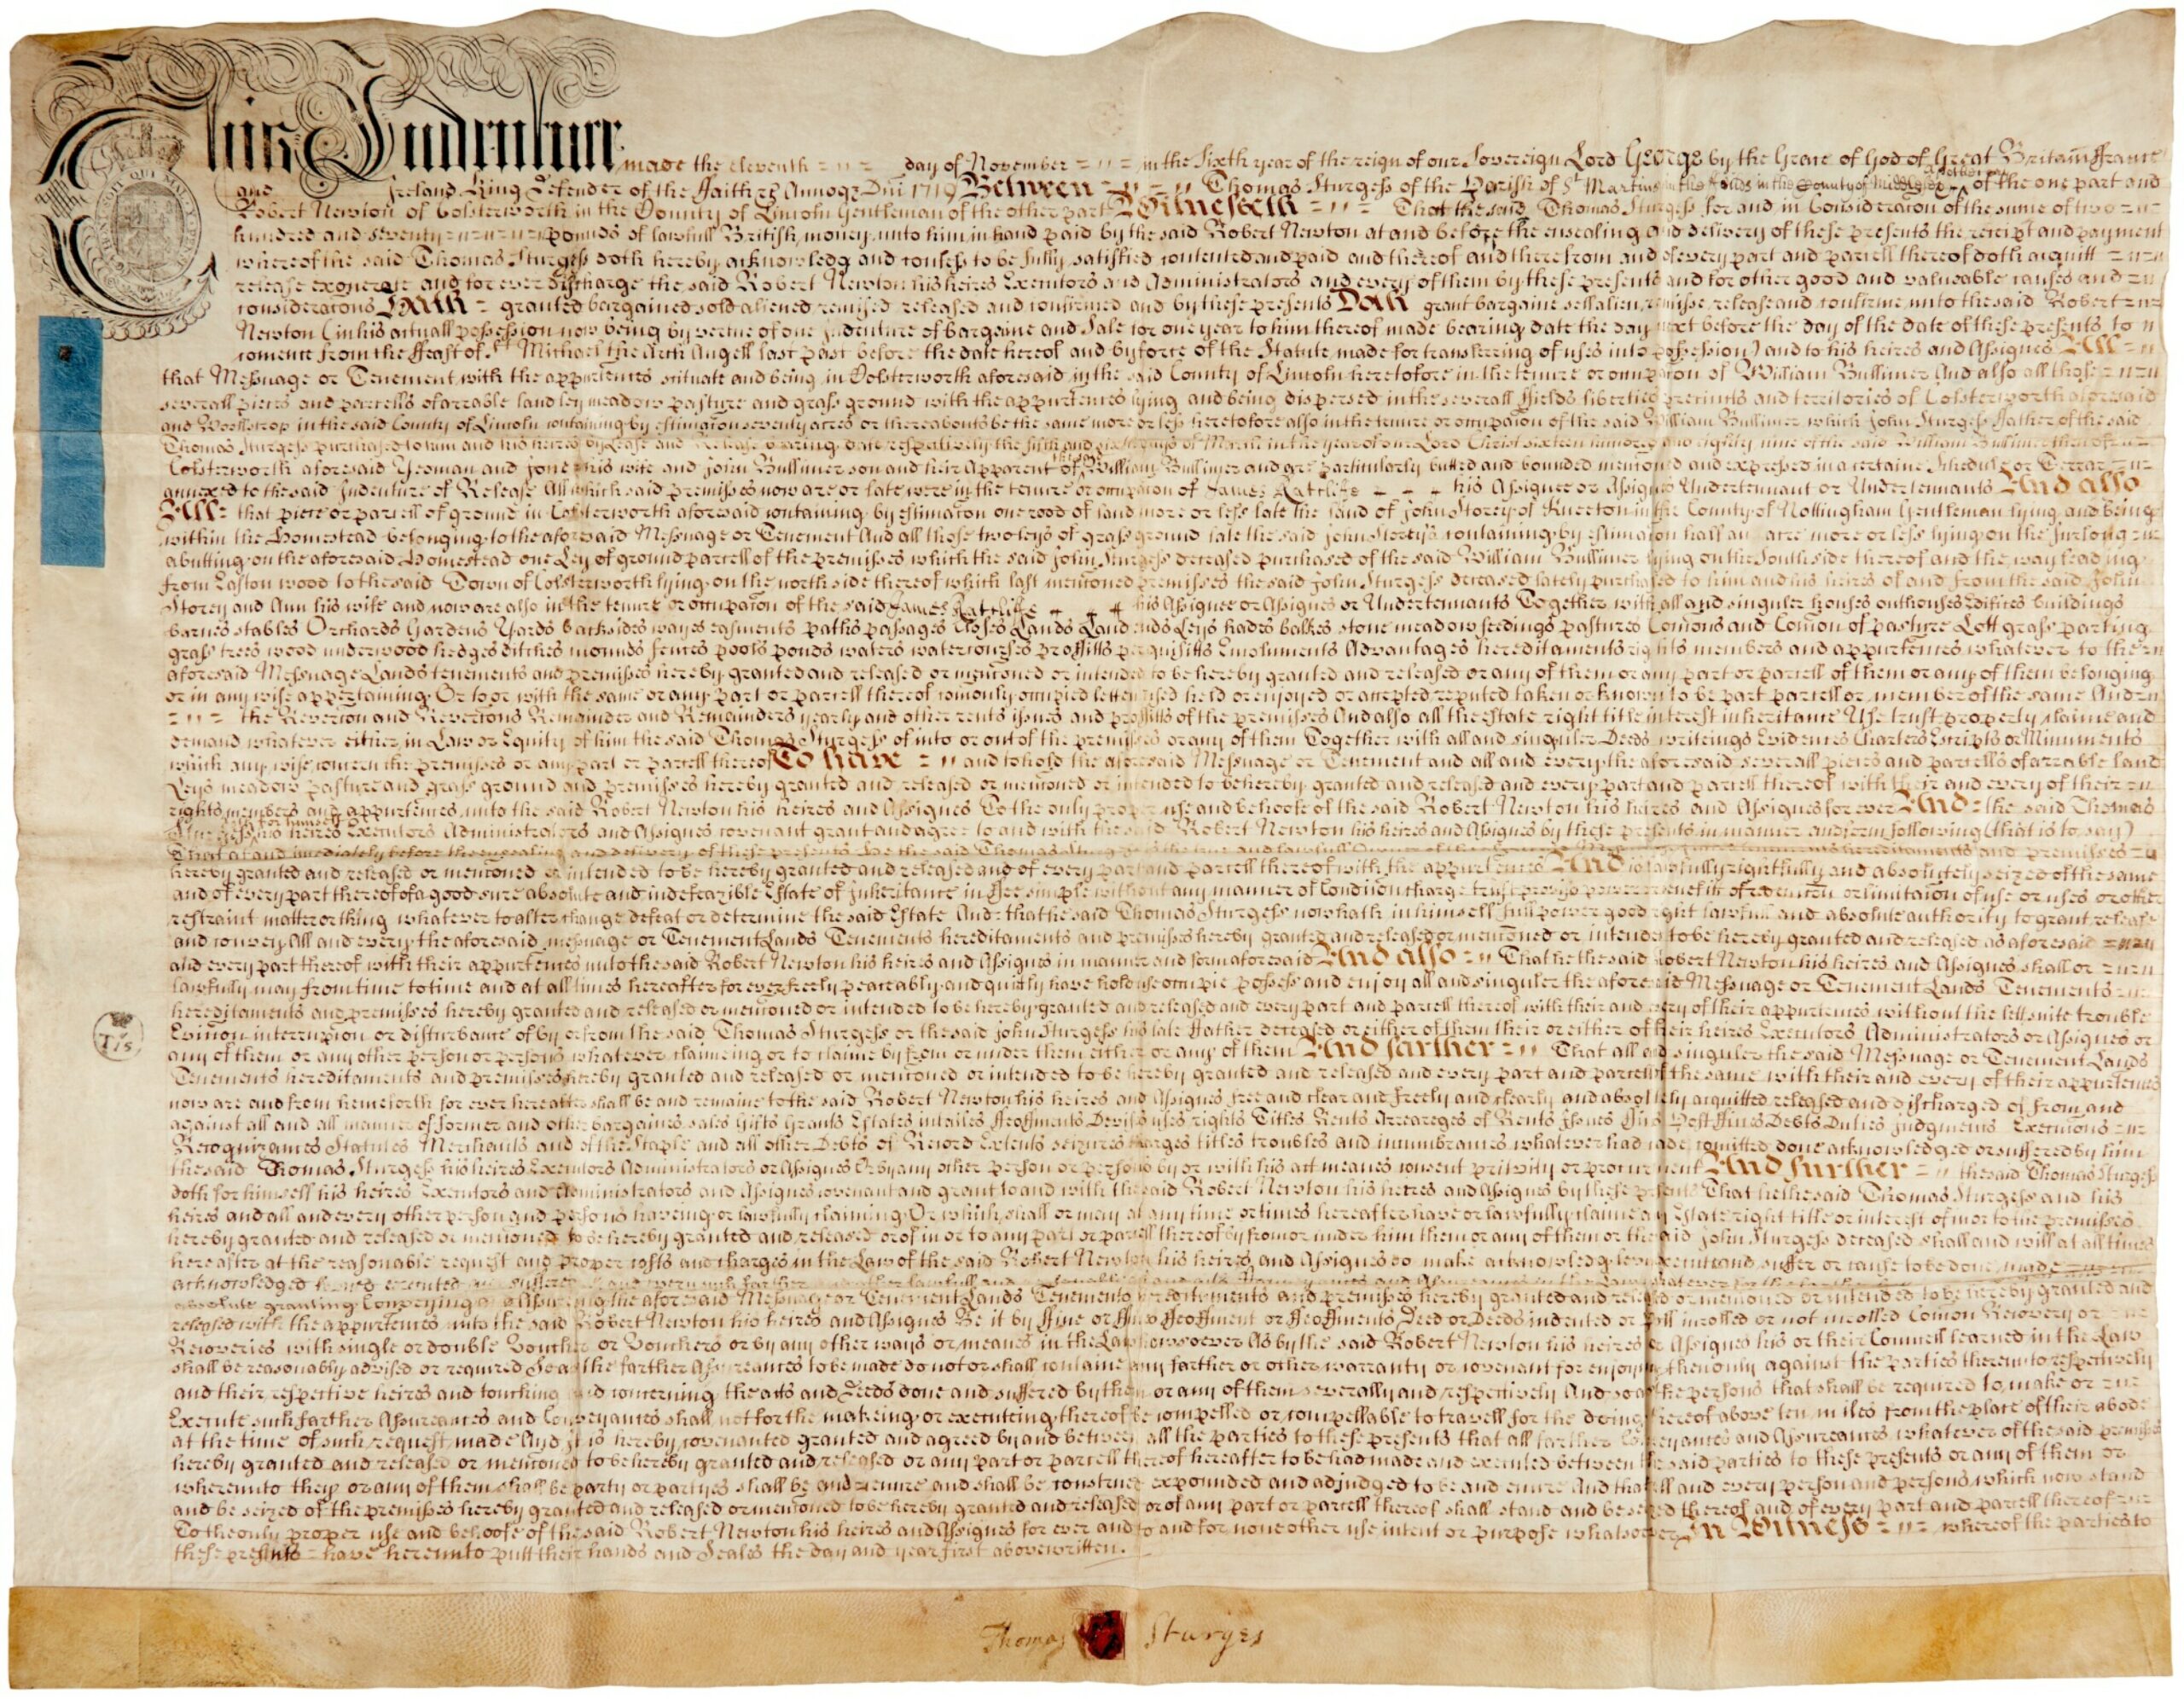 This Indenture made the eleventh day of November in the Sixth year of the reign of our Sovereign Lord George by the Grace of God of Great Britain ffrance
and Ireland King Defender of the Faith &c Annoq Dni 1719 Between Thomas Sturgess of the Parish of St Martins in the ffeilds in the County of Middlesex of the one part and
Robert Newton of Colsterworth in the County of Lincoln Gentleman of the other part Witnesseth That the said Thomas Sturgess for and in Consideracon of the sume of two
hundred and seventy pounds of lawfull British money unto him in hand paid by the said Robert Newton at and before the ensealing and delivery of these presents the receipt and payment
whereof the said Thomas Sturgess doth hereby acknowledg and confess to be fully satisfied contented and paid and thereof and therefrom and of every part and parcell thereof doth acquitt
release exonerate and for ever discharge the said Robert Newton his heires Executors and Administrators and every of them by these presents and for other good and valueable causes and
consideracons Hath granted bargained sold aliened remised released and confirmed and by these presents Doth grant bargaine sell alien remisse release and confirme unto the said Robert
Newton (in his actuall possession now being by vertue of one Indenture of bargaine and Sale for one year to him thereof made bearing date the day next before the day of the date of these presents to
comence from the ffeast of St Michael the Arch Angell last past before the date hereof and by force of the Statute made for transferring of uses into possession) and to his heires and Assignes All
that Messuage or Tenement with the appurtences scituate and being in Colsterworth aforesaid in the said County of Lincoln heretofore in the tenure or occupacon of William Bullimer And also all those
severall pieces and parcells of arrable land ley meadow pasture and grass ground with the appurtences lying and being dispersed in the severall ffields liberties precincts and territories of Colsterworth aforesaid
and Woolstrop in the said County of Lincoln containing by estimacon seventy acres or thereabouts be the same more or less heretofore also in the tenure or occupacon of the said William Bullimer which John Sturgess ffather of the said
Thomas Sturgess purchased to him and his heires by Lease and Release bearing date respectively the fifth and days of March in the year of our Lord Christ sixteen hundred and eighty nine of the said William Bullimer then of
Colsterworth aforesaid Yeoman and Jone his wife and John Bullimer son and heir Apparent of William Bullimer and are particularly butted and bounded mencioned and expressed in a certaine Schedule or Terrar
annexed to the said Indenture of Release All which said premisses now are or late were in the tenure or occupacon of James Ratcliffe his Assignee or Assignes Undertennant or Undertennants And also
All that piece or parcell of ground in Colsterworth aforesaid containing by estimacon one rood of land more or less late the land of John Storey of in the County of Nottingham Gentleman lying and being
within the Homestead belonging to the aforesaid Messuage or Tenement And all those two leys of grass ground late the said John Storeys containing by estimacon half an acre more or less lying on the furlong
abutting on the aforesaid Homestead one Ley of ground parcell of the premisses which the said John Sturgess deceased purchased of the said William Bullimer lying on the South side thereof and the way leading
from Easton wood to the said Town of Colsterworth lying on the north side thereof which last mencioned premisses the said John Sturgess deceased lately purchased to him and his heires of and from the said John
Storey and Ann his wife and now are also in the tenure or occupacon of the said James Ratcliffe his Assignee or Assignes or Undertennants Together with all and singuler houses outhouses Edifices buildings
barnes stables Orchards Gardens Yards backsides wayes easments paths passages Closes Lands Land ends Leys hades balkes stone meadow seedings pastures Comons and Comon of pasture Lott grass parting
grass trees wood underwood hedges ditches mounds fences pools ponds waters watercourses proffitts perquisitts Emoluments Advantages hereditaments rights members and appurtences whatever to the
aforesaid Messuage Lands tenements and premisses hereby granted and released or mencioned or intended to be hereby granted and released or any of them or any part or parcell of them or any of them belonging
or in any wise appertaining Or to or with the same or any part or parcell thereof comonly occupied letten used held or enjoyed or accepted reputed taken or known to be part parcell or member of the same And
the Revercon and Revercons Remainder and Remainders yearly and other rents issues and proffitts of the premisses And also all the estate right title interest inheritance Use trust property claime and
demand whatever either in Law or Equity of him the said Thomas Sturgess of into or out of the premisses or any of them Together with all and singuler Deeds writeings Evidences Charters Escripts or Minuments
which any wise concern the premisses or any part or parcell thereof To have and to hold the aforesaid Messuage or Tenement and all and every the aforesaid severall pieces and parcells of arrable land
Leys meadow pasture and grass ground and premisses hereby granted and released or mencioned or intended to be hereby granted and released and every part and parcell thereof with their and every of their
rights members and appurtences unto the said Robert Newton his heires and Assignes To the only proper use and behoofe of the said Robert Newton his heires and Assignes for ever And the said Thomas
Sturgess for himself his heires Executors Administrators and Assignes covenant grant and agree to and with the said Robert Newton his heires and Assignes by these presents in manner and form following (that is to say)
That at and imediately before the ensealing and delivery of these presents he the said Thomas the true and lawfull hereditaments and premisses
hereby granted and released or mencioned or intended to be hereby granted and released and of every part and parcell thereof with the appurtences And is lawfully rightfully and absolutely seized of the same
and of every part thereof of a good sure absolute and indefeazible Estate of Inheritance in ffee simple without any manner of Condicon charge trust proviso power benefitt of redemcon or limitacon of use or uses or other
restraint matter or thing whatever to alter change defeat or determine the said Estate And that he said Thomas Sturgess now hath in himself full power good right lawfull and absolute authority to grant release
and convey All and every the aforesaid messuage or Tenement Lands Tenements hereditaments and premisses hereby granted and released or mencioned or intended to be hereby granted and released as aforesaid
and every part thereof with their appurtences unto the said Robert Newton his heires and Assignes in manner and form aforesaid And also That he the said Robert Newton his heires and Assignes shall or
lawfully may from time to time and at all times hereafter for ever freely peaceably and quietly have hold use occupie possess and enjoy all and singuler the aforesaid Messuage or Tenement Lands Tenements
hereditaments and premisses hereby granted and released or mencioned or intended to be hereby granted and released and every part and parcell thereof with their and every of their appurtences without the lett suite trouble
Eviction interrupcon or disturbance of by or from the said Thomas Sturgess or the said John Sturgess his late ffather deceased or either of them their or either of their heires Executors Administrators or Assignes or
any of them or any other person or persons whatever claimeing or to claime by from or under them either or any of them And farther That all and singuler the said Messuage or Tenement Lands
Tenements hereditaments and premisses hereby granted and released or mencioned or intended to be hereby granted and released and every part and parcell of the same with their and every of their appurtences
now are and from henceforth for ever hereafter shall be and remaine to the said Robert Newton his heires and Assignes free and clear and freely and clearly and absolutely acquitted released and discharged of from and
against all and all manner of former and other bargaines sales Gifts Grants Estates intailes ffeoffments Devises uses rights Titles Rents Arrearages of Rents Issues ffines Post ffines Debts Duties Judgments Executions
Recognizances Statutes Merchants and of the Staple and all other Debts of Record Extents seizures charges titles troubles and incumbrances whatever had made comitted done acknowledged or suffered by him
the said Thomas Sturgess his heires Executors Administrators or Assignes Or by any other person or persons by or with his act meanes consent privity or procurement And further the said Thomas Sturgess
doth for himself his heires Executors and Administrators and Assignes covenant and grant to and with the said Robert Newton his heires and Assignes by these presents That he the said Thomas Sturgess and his
heires and all and every other person and persons haveing or lawfully claiming Or which shall or may at any time or times hereafter have or lawfully claime any Estate right title or interest of in or to the premisses
hereby granted and released or mencioned to be hereby granted and released or of in or to any part or parcell thereof by from or under him them or any of them or the said John Sturgess deceased shall and will at all times
hereafter at the reasonable request and proper costs and charges in the Law of the said Robert Newton his heires and Assignes do make acknowledg levy execute and suffer or cause to be done made
acknowledged executed and suffered and every such farther lawfull and in the Law whatever for the farther
absolute granting Conveying and Assureing the aforesaid Messuage or Tenement Lands Tenements hereditaments and premisses hereby granted and released or mencioned or intended to be hereby granted and
released with the appurtences unto the said Robert Newton his heires and Assignes Be it by ffine or ffines ffeoffment or ffeoffments Deed or Deeds indented or Poll inrolled or not inrolled Comon Recovery or
Recoveries with single or double Voucher or Vouchers or by any other ways or meanes in the Law howsoever As by the said Robert Newton his heires or Assignes his or their Councill learned in the Law
shall be reasonably advised or required So as the farther Assureances to be made do not or shall containe any farther or other warranty or covenant for enjoying then only against the parties thereunto respectively
and their respective heires and touching and concerning the acts and Deeds done and suffered by them or any of them severally and respectively And so as the persons that shall be required to make or
Execute such farther Assureances and Conveyances shall not for the makeing or executeing thereof be compelled or compellable to travell for the doing thereof above ten miles from the place of their abode
at the time of such request made And it is hereby covenanted granted and agreed by and between all the parties to these presents that all farther Conveyances and Assureances whatever of the said premisses
hereby granted and released or mencioned to be hereby granted and released or any part or parcell thereof hereafter to be had made and executed between the said parties to these presents or any of them or
whereunto they or any of them shall be party or partyes shall be and enure and shall be construed expounded and adjudged to be and enure And that all and every person and persons which now stand
and be seized of the premisses hereby granted and released or mencioned to be hereby granted and released or of any part or parcell thereof shall stand and be seized thereof and of every part and parcell thereof
To the only proper use and behoofe of the said Robert Newton his heires and Assignes for ever and to and for none other use intent or purpose whatsoever In Witness whereof the parties to
these presents have hereunto putt their hands and Seales the day and year first abovewritten.
Thomas Sturges